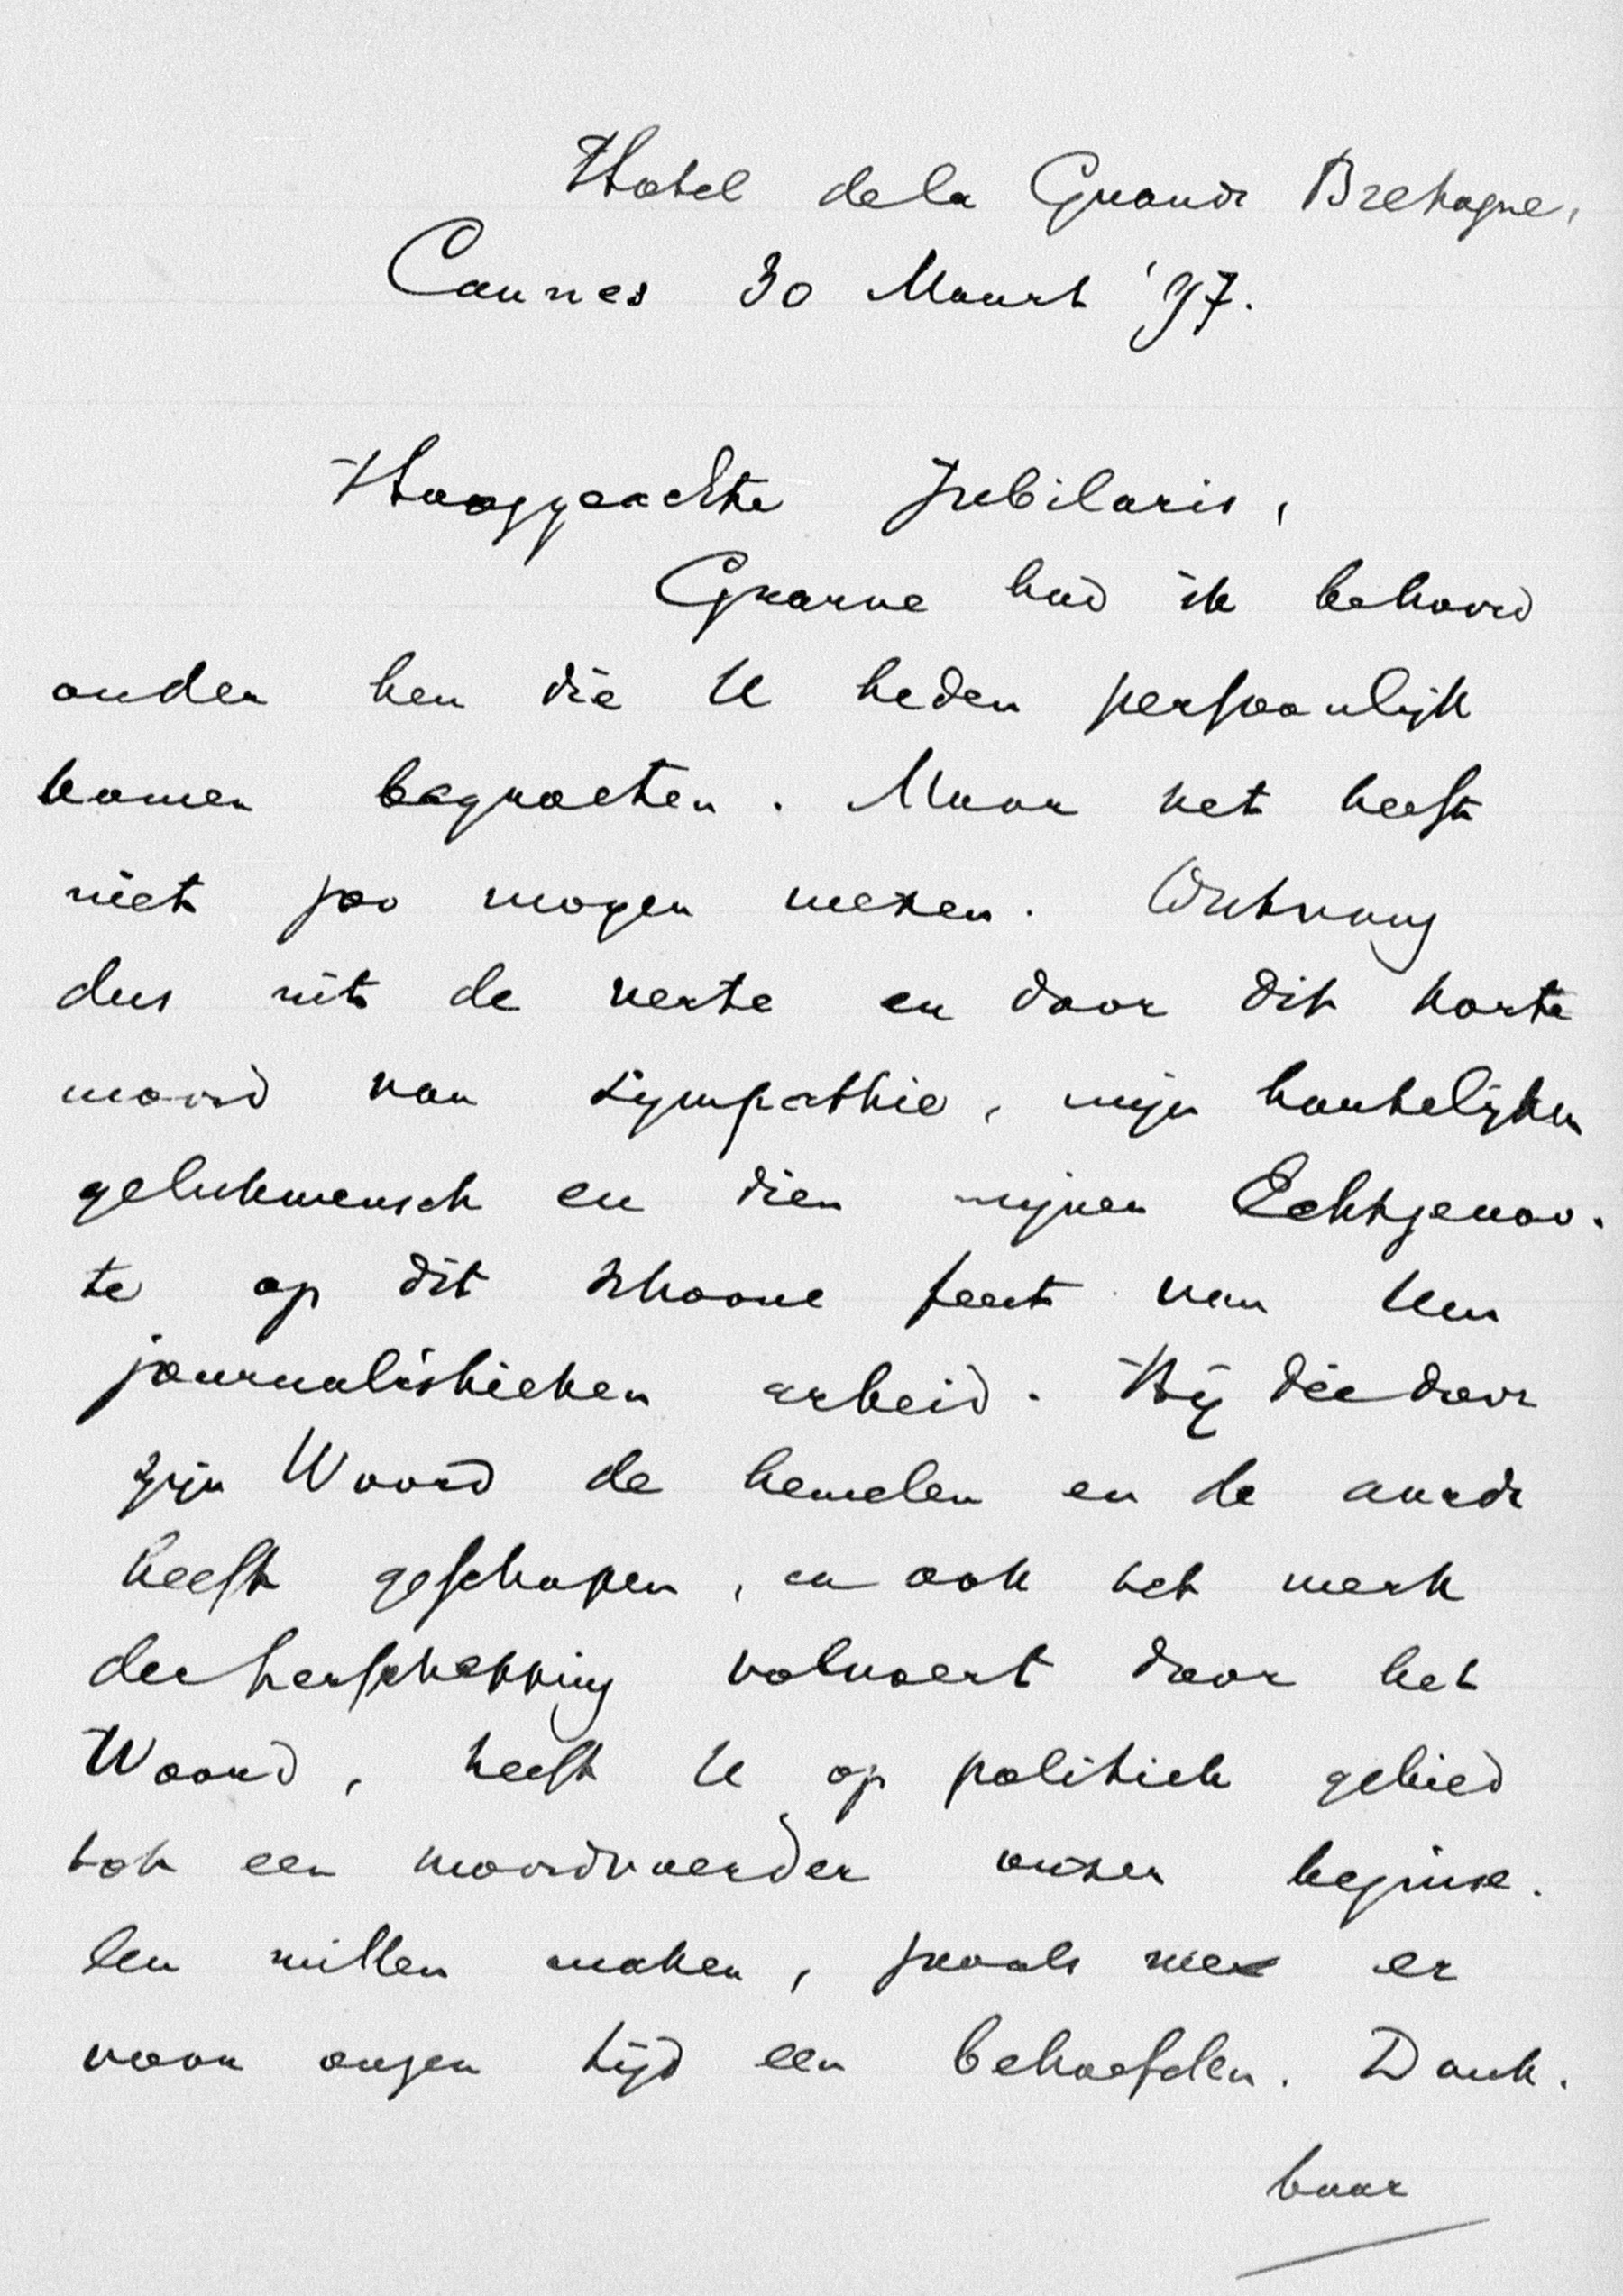 Hotel de la Grande Bretagne,
Cannes 30 Maart '97.
Hooggeachte Jubilaris,
Gaarne had ik behoord
onder hen die U heden persoonlijk
komen begroeten. Maar het heeft
niet zoo mogen wezen. Ontvang
dus uit de verte en door dit korte
woord van sympathie, mijn hartelijken
gelukwensch en dien mijner Echtgenoo-
te op dit schoone feest van Uw
journalistieken arbeid. Hij die door
zijn Woord de hemelen en de aarde
heeft geschapen, en ook het werk
der herschepping volvoert door het
Woord, heeft U op politiek gebied
tot een woordvoerder onzer beginse-
len willen maken, zooals wij er
voor onzen tijd een behoefden. Dank-
baar